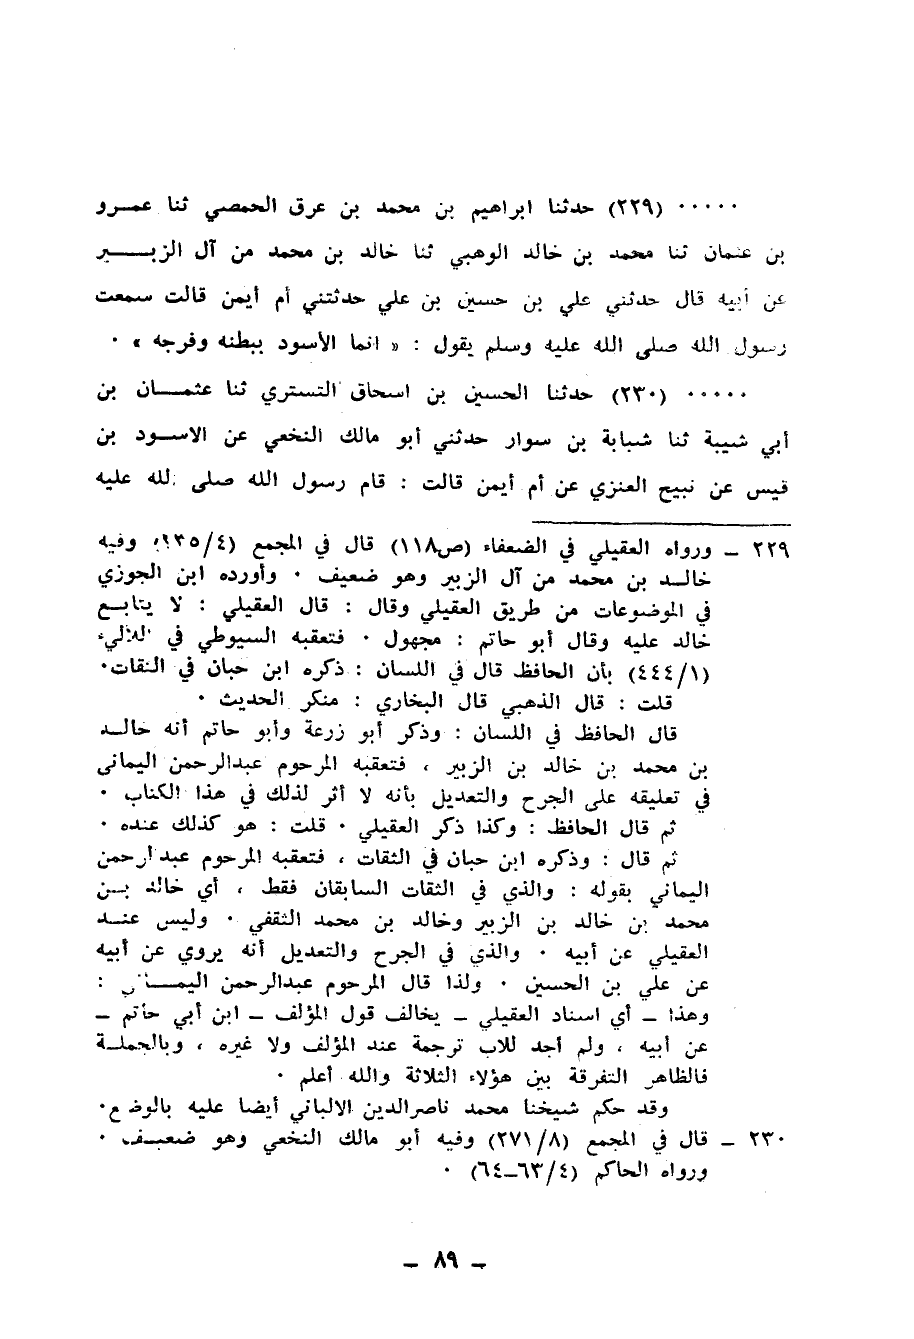 ٠٠٠٠٠ (٢٢٩) حدثنا ابراهيم بن محمد بن عرق الحمصي ثنا عمـرو
بن عثمان ثنا محمد بن خالد الوهبي ثنا خالد بن محمد من آل الزبـــير
عن أبيه قال حدثني علي بن حسين بن علي حدثتني أم أيمن قالت سمعت
رسول الله صلى الله عليه وسلم يقول : « انما الأسود ببطنه وفرجه » ٠
٠٠٠٠٠ (٢٣٠) حدثنا الحسين بن اسحاق التستري ثنا عثمـــان بن
أبي شيبة ثنا شبابة بن سوار حدثني أبو مالك النخعي عن الاسـود بن
قيس عن نبيح العنزي عن أم أيمن قالت : قام رسول الله صلى الله عليه
٢٢٩ ــ ورواه العقيلي في الضعفاء (ص١١٨) قال في المجمع (٤/٢٣٥) وفيه
خالـد بن محمد من آل الزبير وهو ضعيف ٠ وأورده ابن الجوزي
في الموضوعات من طريق العقيلي وقال : قال العقيلي : لا يتابـع
خالد عليه وقال أبو حاتم : مجهول ٠ فتعقبه السيوطي في اللآليء
(١/٤٤٤) بأن الحافظ قال في اللسان : ذكره ابن حبان في الثقات٠
قلت : قال الذهبي قال البخاري : منكر الحديث ٠
قال الحافظ في اللسان : وذكر أبو زرعة وأبو حاتم أنه خالـد
بن محمد بن خالد بن الزبير ، فتعقبه المرحوم عبدالرحمن اليمانى
في تعليقه على الجرح والتعديل بأنه لا أثر لذلك في هذا الكتاب ٠
ثم قال الحافظ : وكذا ذكر العقيلي ٠ قلت : هو كذلك عنده ٠
ثم قال : وذكره ابن حبان في الثقات ، فتعقبه المرحوم عبدالرحمن
اليماني بقوله : والذي في الثقات السابقان فقط ، أي خالد بـن
محمد بن خالد بن الزبير وخالد بن محمد الثقفي ٠ وليس عنـد
العقيلي عن أبيه ٠ والذي في الجرح والتعديل أنه يروي عن أبيه
عن علي بن الحسين ٠ ولذا قال المرحوم عبدالرحمن اليمـــاني :
وهذا ــ أي اسناد العقيلي ــ يخالف قول المؤلف ــ ابن أبي حاتم ــ
عن أبيه ، ولم أجد للاب ترجمة عند المؤلف ولا غيره ، وبالجملـة
فالظاهر التفرقة بين هؤلاء الثلاثة والله أعلم ٠
وقد حكم شيخنا محمد ناصرالدين الالباني أيضا عليه بالوضع٠
٢٣٠ ــ قال في المجمع (٨/٢٧١) وفيه أبو مالك النخعي وهو ضعيـف ٠
ورواه الحاكم (٤/٦٣ــ٦٤) ٠
ــ ٨٩ ــ